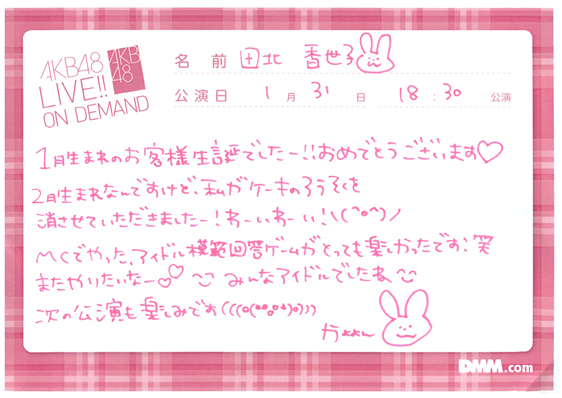 AKB48
LIVE!!
ON DEMAND
AKB
48
名前 田北 香世子
公演日 1月 31日 18:30 公演
1月生まれのお客様生誕でしたー!!おめでとうございます♡
2月生まれなんですけど、私がケーキのろうそくを
消させていただきましたー!わーいわーい!\(^o^)ノ
MCでやった、アイドル模範回答ゲームがとっても楽しかったです:笑
またやりたいなー♡♡ みんなアイドルでしたね
次の公演も楽しみです
かよよん
DMM.com